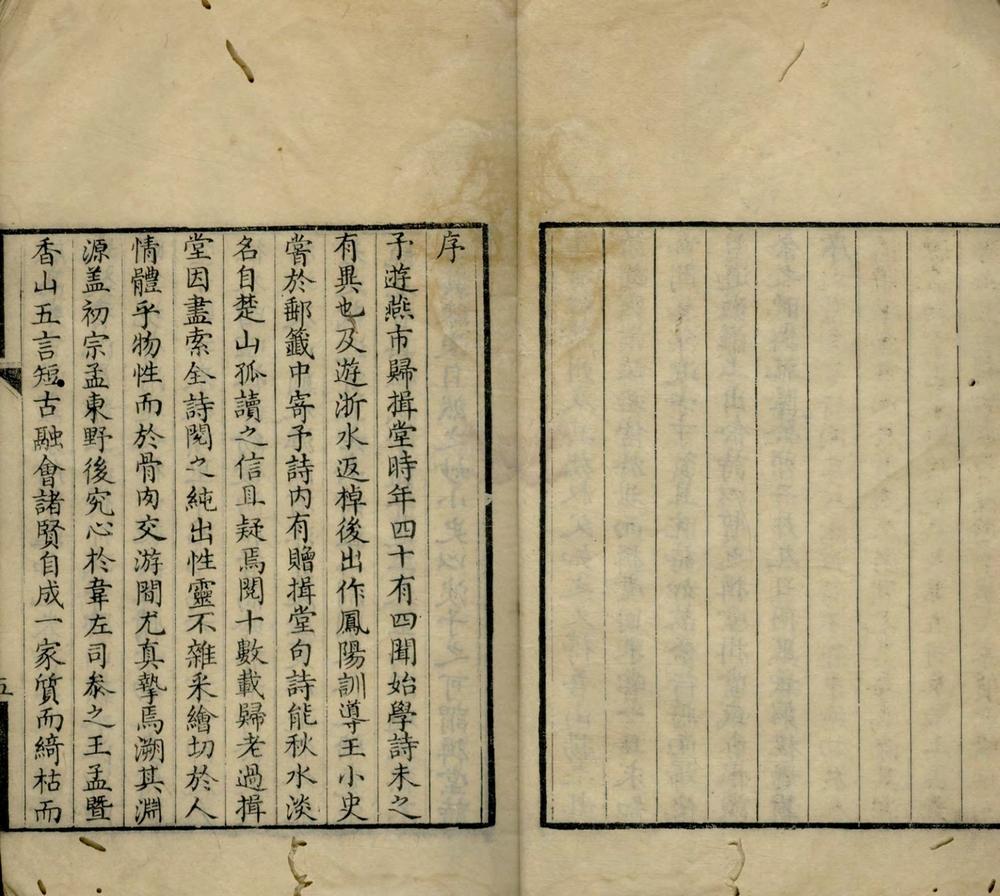 序
予遊燕市歸揖堂時年四十有四聞始學詩未之
有異也及遊浙水返棹後出作鳳陽訓導王小史
嘗於郵籤中寄予詩內有贈揖堂句詩能秋水淡
名自楚山孤讀之信且疑焉閱十數載歸老過揖
堂因盡索全詩閱之純出性靈不雜采繪切於人
情體乎物性而於骨肉交游間尤真摯焉溯其淵
源盖初宗孟東野後究心於韋左司叅之王孟暨
香山五言短古融會諸賢自成一家質而綺枯而
五